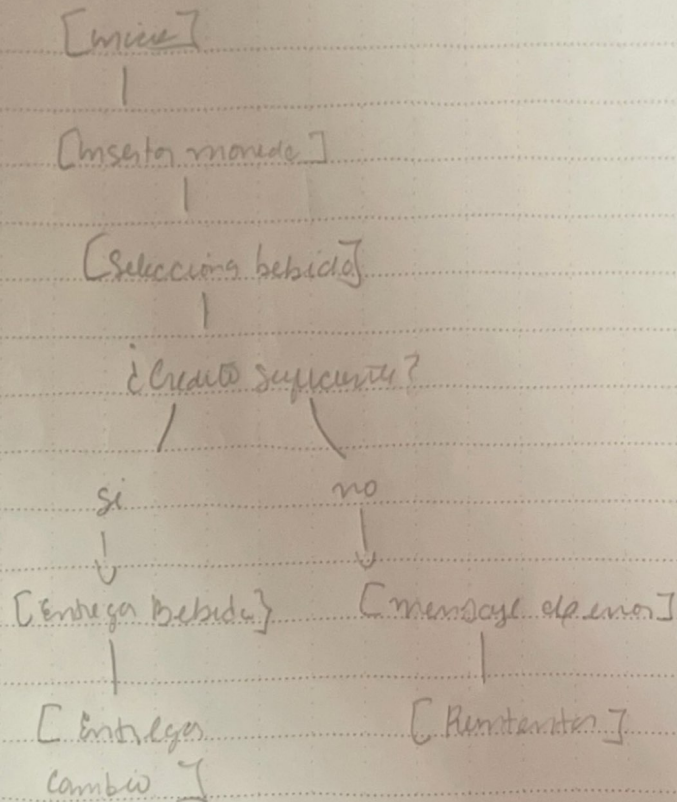 [inicio]
[Insertar moneda]
[Selecciona bebida]
¿Credito suficiente?
si no
[Entrega Bebida] [mensaje de error]
[Entrega [Reintentar]
cambio]